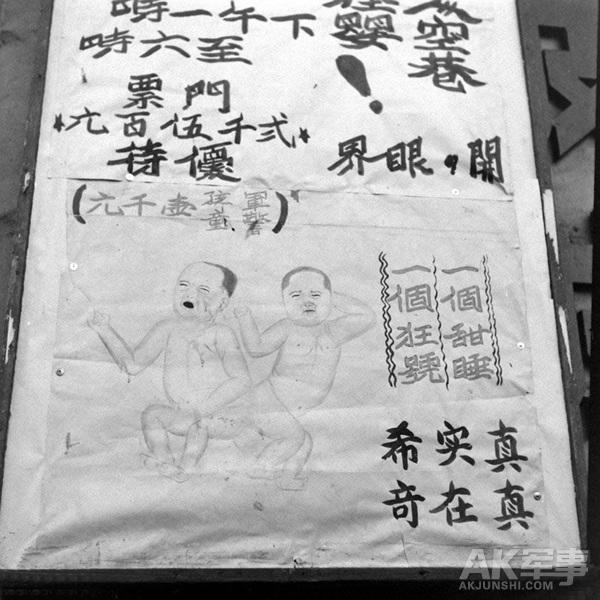 空巷
狂嬰！
下午一時
至六時
門票
弍千伍百元
優待
開眼界
(軍警孩童壹千元)
一個甜睡
一個狂號
真真
实在
希奇
AK军事
AKJUNSHI.COM